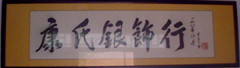 康氏銀飾行